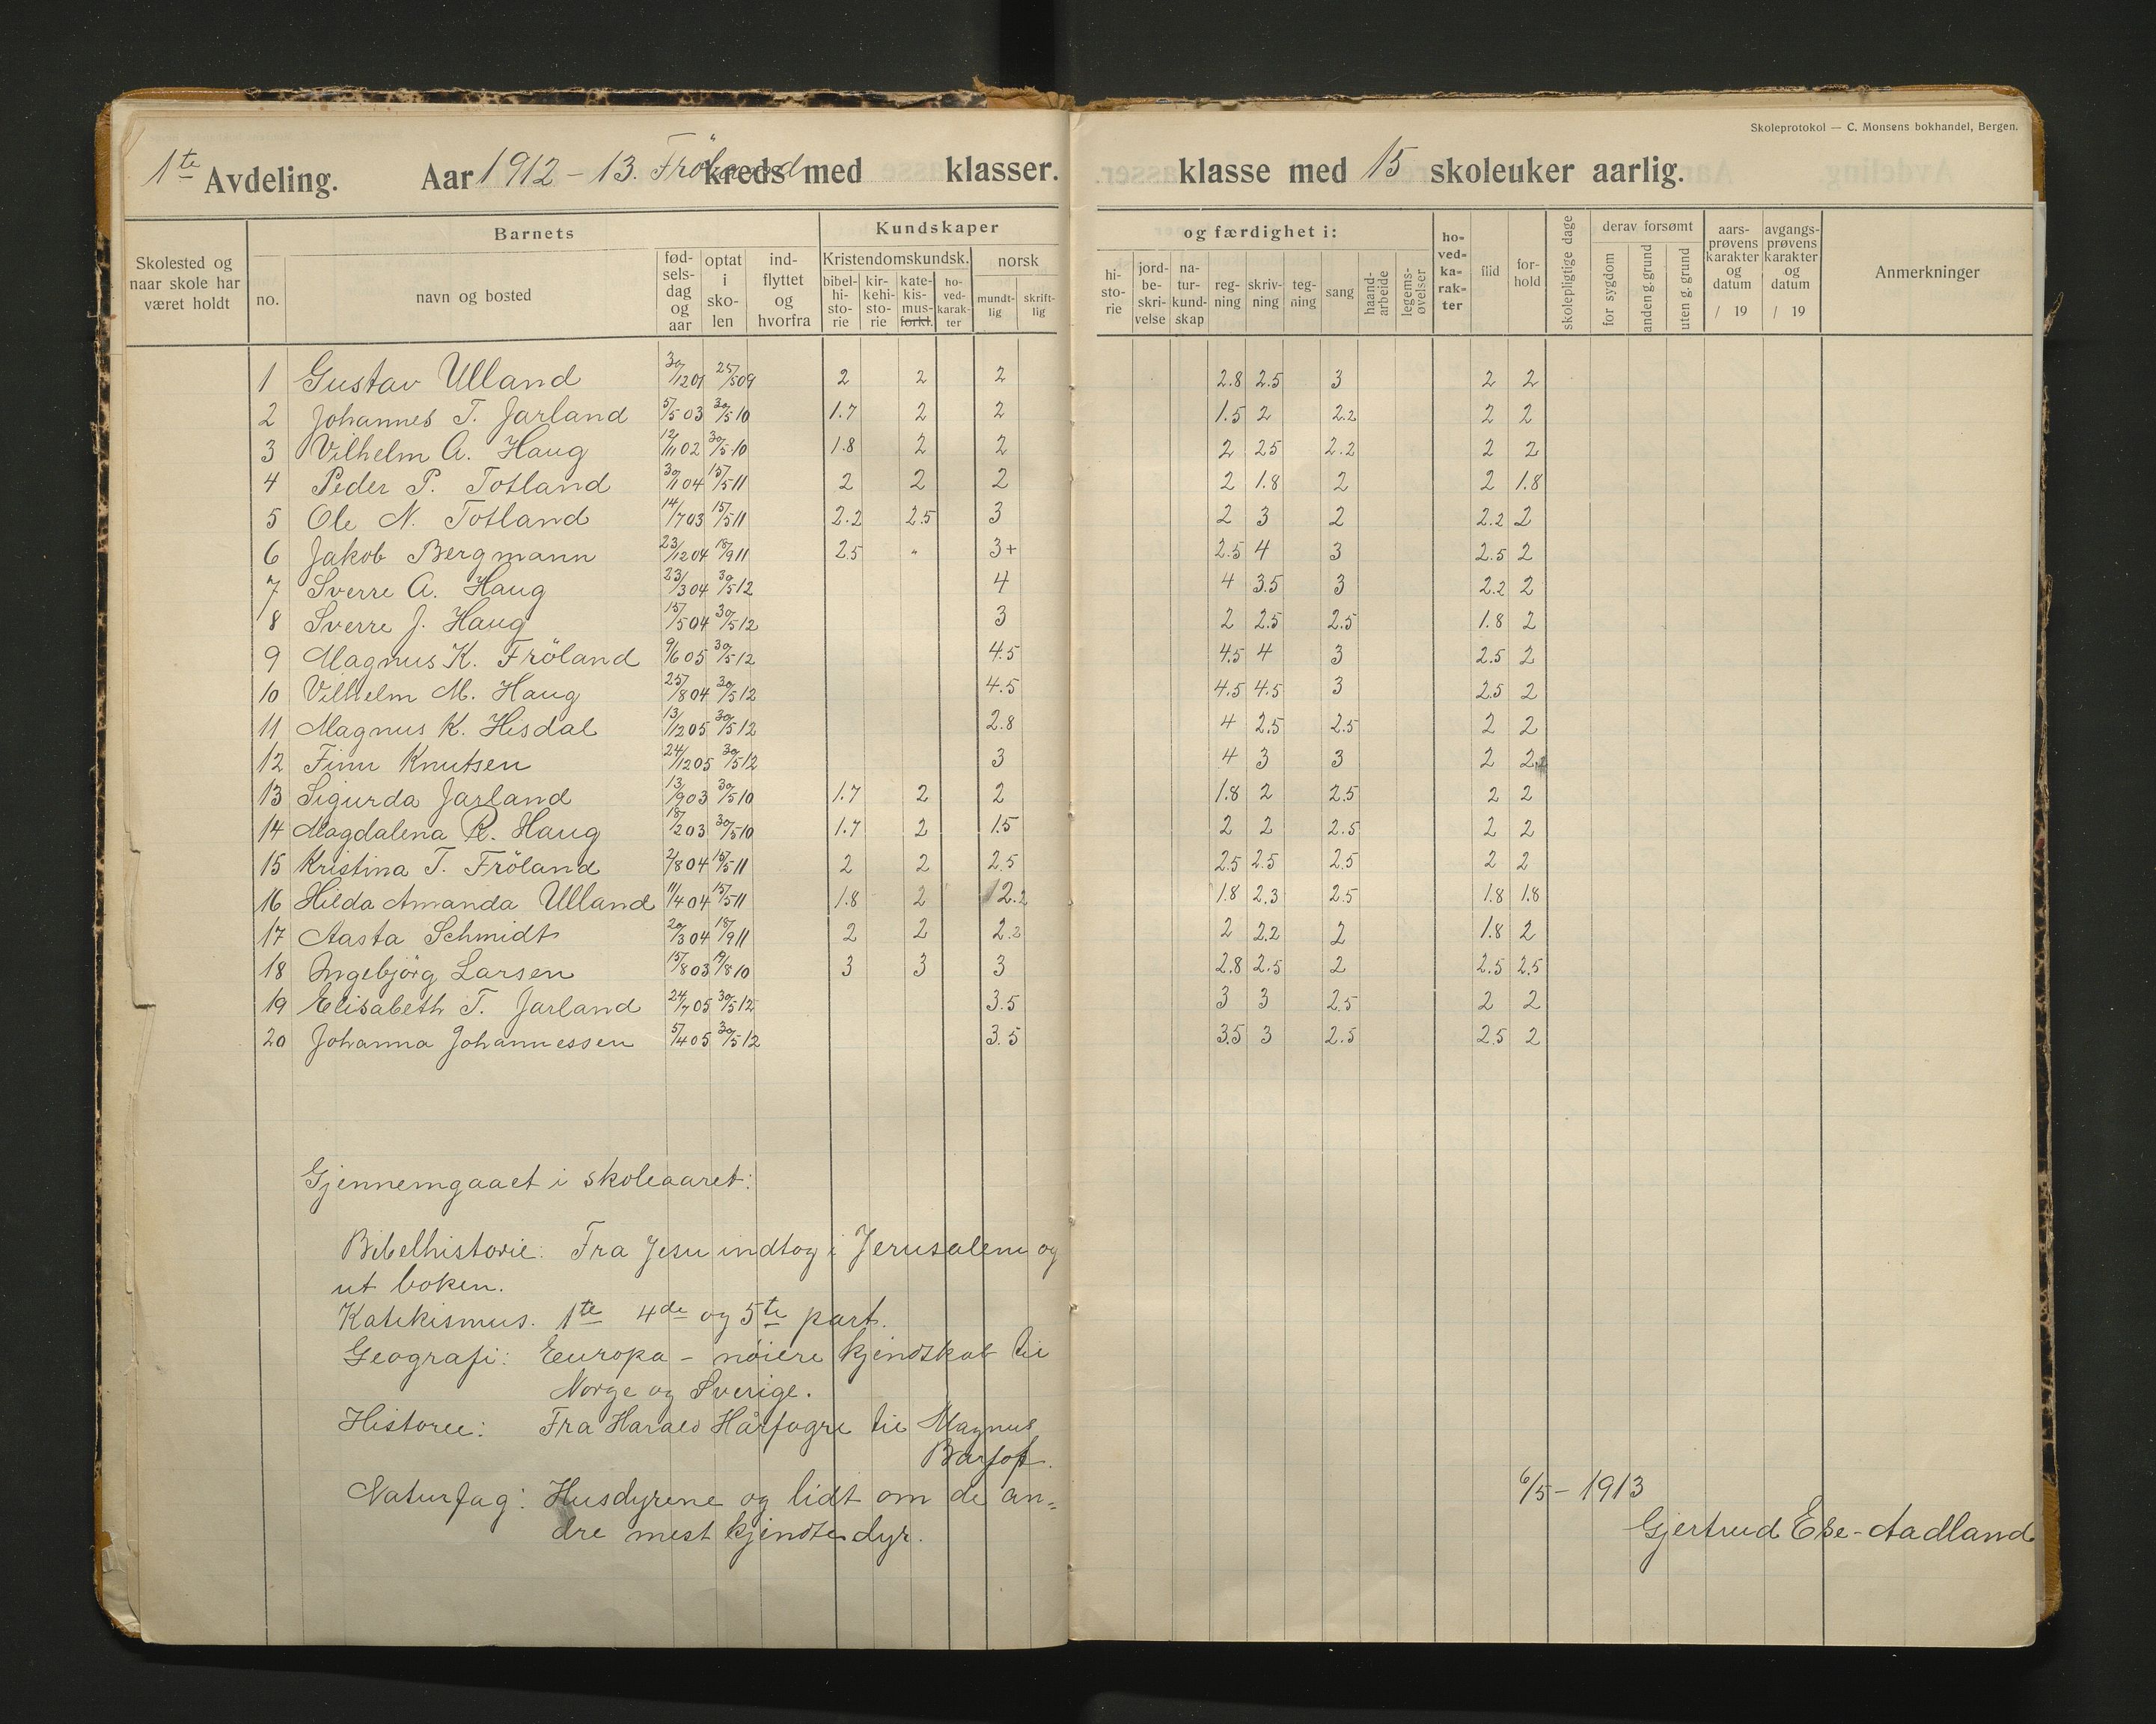 Skoleprotokol — C. Monsens bokhandel, Bergen.
1te Avdeling. Aar 1912 - 13. Fröland kreds med klasser. klasse med 15 skoleuker aarlig.
Skolested og naar skole har været holdt
Barnets
no. navn og bosted fødselsdag og aar optat i skolen indflyttet og hvorfra
Kundskaper
Kristendomskundsk. norsk
bibelhistorie kirkehistorie katekismus forkl. hovedkarakter mundtlig skriftlig
og færdighet i:
historie jordbeskrivelse naturkundskap regning skrivning tegning sang haandarbeide legemsøvelser
hovedkarakter flid forhold skolepligtige dage
derav forsømt
for sygdom anden g. grund uten g. grund
aarsprøvens karakter og datum / 19 avgangsprøvens karakter og datum / 19
Anmerkninger
1 Gustav Ulland 30/12 01 25/5 09 2 2 2 2.8 2.5 3 2 2
2 Johannes T. Jarland 5/5 03 30/5 10 1.7 2 2 1.5 2 2.2 2 2
3 Vilhelm A. Haug 12/11 02 30/5 10 1.8 2 2 2 25 2.2 2 2
4 Peder P. Totland 30/1 04 15/5 11 2 2 2 2 1.8 2 2 1.8
5 Ole N. Totland 14/7 03 15/5 11 2.2 2.5 3 2 3 2 2.2 2
6 Jakob Bergmann 23/12 04 18/9 11 25 " 3+ 2.5 4 3 2.5 2
7 Sverre A. Haug 23/3 04 30/5 12 4 4 3.5 3 2.2 2
8 Sverre J. Haug 15/5 04 30/5 12 3 2 2.5 2.5 1.8 2
9 Magnus K. Fröland 9/6 05 30/5 12 4.5 4.5 4 3 2.5 2
10 Vilhelm M. Haug 25/8 04 30/5 12 4.5 4.5 4.5 3 2.5 2
11 Magnus K. Hisdal 13/12 05 30/5 12 2.8 4 2.5 2.5 2 2
12 Finn Knutsen 24/12 05 30/5 12 3 4 3 3 2 2
13 Sigurda Jarland 13/9 03 30/5 10 1.7 2 2 1.8 2 2.5 2 2
14 Magdalena R. Haug 18/2 03 30/5 10 1.7 2 1.5 2 2 2.5 2 2
15 Kristina T. Fröland 2/8 04 15/5 11 2 2 2.5 2.5 2.5 2.5 2 2
16 Hilda Amanda Ulland 11/4 04 15/5 11 1.8 2 2.2 1.8 2.3 2.5 1.8 1.8
17 Aasta Schmidt 20/3 04 18/9 11 2 2 2.2 2 2.2 2 1.8 2
18 Ingebjörg Larsen 15/8 03 19/8 10 3 3 3 2.8 2.5 2 2.5 2.5
19 Elisabeth T. Jarland 24/7 05 30/5 12 3.5 3 3 2.5 2 2
20 Johanna Johannessen 5/4 05 30/5 12 3.5 3.5 3 2.5 2.5 2
Gjennemgaaet i skoleaaret:
Bibelhistorie: Fra Jesu indtog i Jerusalem og
ut boken.
Katekismus. 1te 4de og 5te part.
Geografi: Eeuropa - nöiere kjendskab til
Norge og Sverige.
Historie: Fra Harald Hårfagre til Magnus
Barfot.
Naturfag: Husdyrene og lidt om de an=
dre mest kjendte dyr.
6/5 - 1913
Gjertrud Ese-Aadland